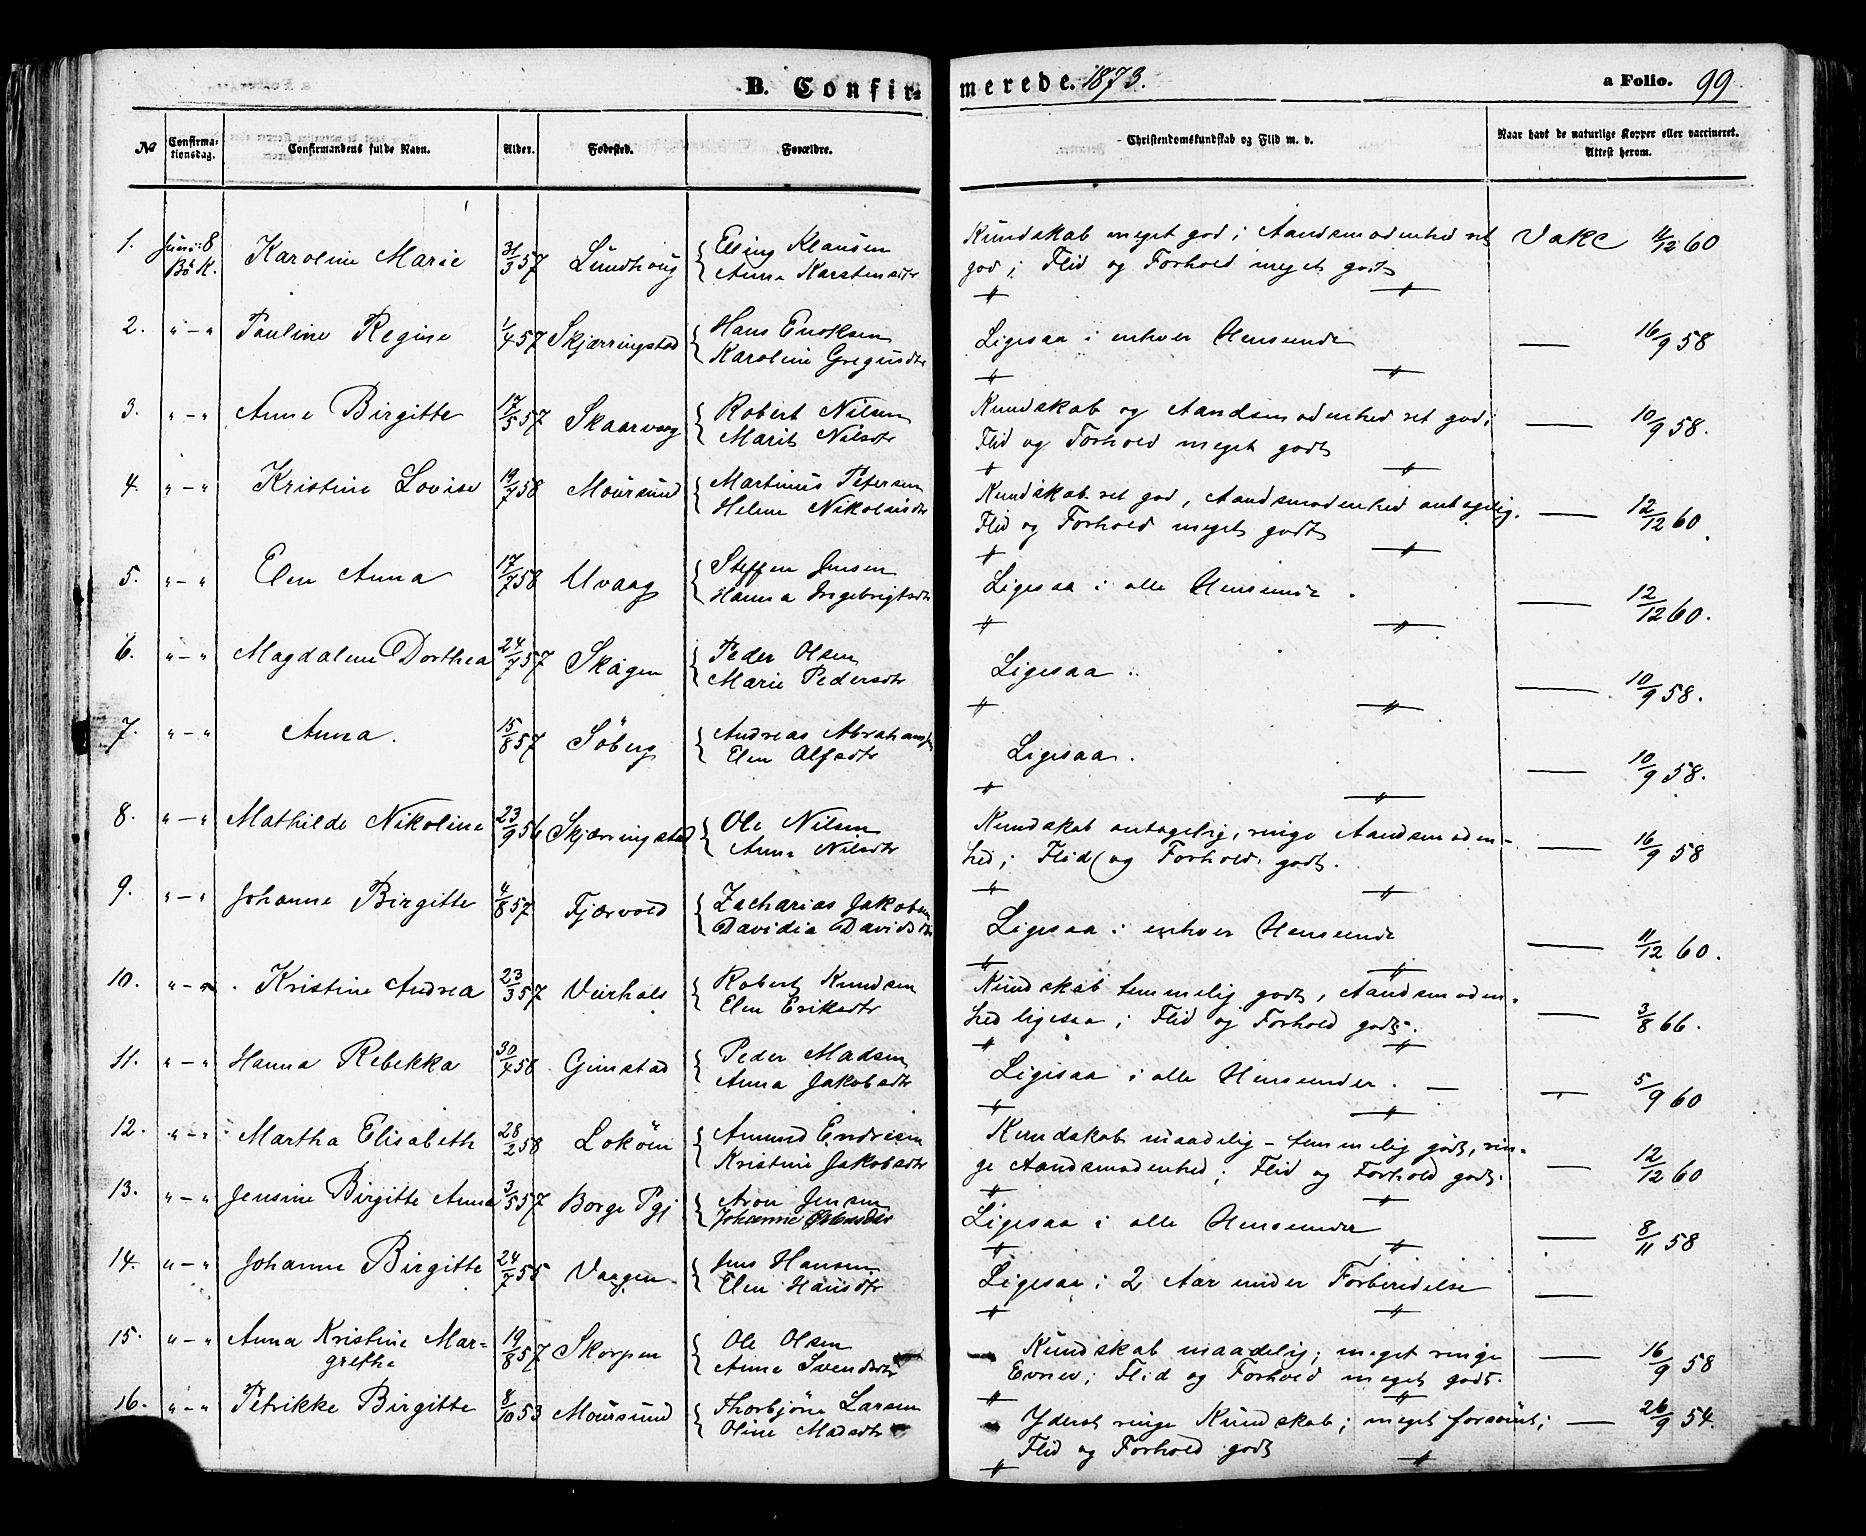 B. Confirmerede. 1873. a Folio. 99
No Confirmationsdag. Confirmandens fulde Navn. Alder. Fødested. Forældre. Christendomskundskab og Flid m. v. Naar havt de naturlige Kopper eller vaccineret. Attest herom.
1. Juni 8 Bö K. Karoline Marie 31/3 57 Lundhoug { Elling Klausen Kundskab meget god; Aandsmodenhed ret Vakc 11/12 60
Anna Karstensdtr god; Flid og Forhold meget godt
2. " – " Pauline Regine 1/4 57 Skjærringstad { Hans Enoksen Ligesaa i enhver Henseende — 16/9 58
Karoline Gregusdtr
3. " – " Anne Birgitte 17/5 57 Skaarvaag { Robert Nilsen Kundskab og Aandsmodenhed ret god; — 10/9 58.
Marit Nilsdtr Flid og Forhold meget godt
4. " – " Kristine Lovise 19/7 58 Moursund { Martinus Petersen Kundskab ret god, Aandsmodenhed antagelig. — 12/12 60.
Helene Nikolaisdtr Flid og Forhold meget godt
5. " – " Elen Anna 17/7 58 Uvaag { Steffen Jensen Ligesaa i alle Henseender. — 12/12 60.
Hanna Ingebrigtsdtr
6. " – " Magdalene Dorthea 24/7 57 Skagen { Peder Olsen Ligesaa. — 10/9 58.
Marie Pedersdtr
7. " – " Anna. 15/8 57 Söberg { Andreas Abrahamsen Ligesaa. — 10/9 58.
Elen Alfsdtr
8. " – " Mathilde Nikoline 23/9 56 Skjærringstad { Ole Nilsen Kundskab antagelig, ringe Aandsmoden- — 16/9 58
Anne Nilsdtr hed; Flid og Forhold godt.
9. " – " Johanne Birgitte 4/8 57 Fjærvold { Zacharias Jakobsen Ligesaa i enhver Henseende — 11/12 60.
Davidia Davidsdtr
10. " – " Kristine Andrea 23/3 57 Veirhals { Robert Knudsen Kundskab temmelig godt, Aandsmoden- — 3/8 66.
Elen Eriksdtr hed ligesaa; Flid og Forhold godt.
11. " – " Hanna Rebekka 30/4 58 Gimstad { Peder Madsen Ligesaa i alle Henseender. — 5/9 60
Anna Jakobsdtr
12. " – " Martha Elisabeth 28/2 58 Lokøen { Amund Endresen Kundskab maadelig – temmelig godt, rin- — 12/12 60
Kristine Jakobsdtr ge Aandsmodenhed; Flid og Forhold godt.
13. " – " Jensine Birgitte Anna 3/5 57 Borge Pgj { Aron Jensen Ligesaa i alle Henseender — 8/11 58
Johanne
14. " – " Johanne Birgitte 24/7 55 Vaagen { Jens Hansen Ligesaa i 2 Aar under Forberedelse —
Elen Hansdtr
15. " – " Anna Kristine Mar- 19/8 57 Skorpen { Ole Olsen Kundskab maadelig; meget ringe — 16/9 58
grethe Anne Svendsdtr Evner; Flid og Forhold meget godt.
16. " – " Petrikke Birgitte 8/10 53 Moursund { Thorbjörn Larsen Yderst ringe Kundskab; meget forsömt; — 26/9 54.
Oline Madsdtr Flid og Forhold godt